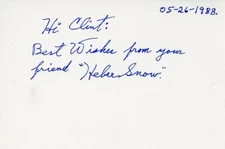 05-26-1988.
Hi Clint:
Best Wishes from your
friend "Hebee Snow."